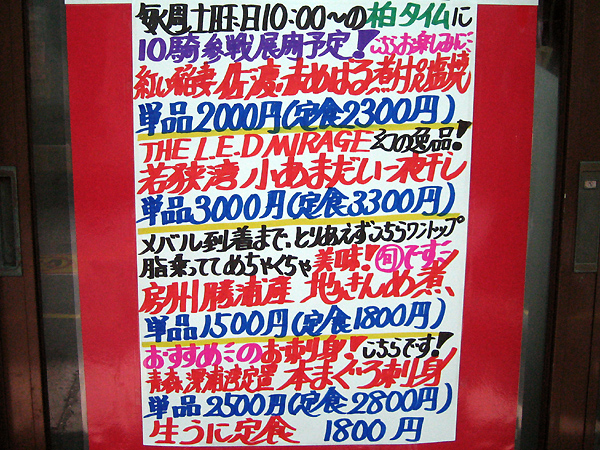 毎週土曜日10:00〜の柏タイムに
10騎参戦展開予定!こちらお楽しみに
紅い稲妻 佐渡 赤めばる煮付or塩焼
単品2000円(定食2300円)
THE L.E.D MIRAGE 幻の逸品!
若狭湾 小あまだい一夜干し
単品3000円(定食3300円)
メバル到着まで、とりあえずこちらワントップ
脂乗っててめちゃくちゃ美味!旬です
房州勝浦産 地きんめ煮
単品1500円(定食1800円)
おすすめこのお刺身!こちらです!
青森深浦湾定置 本まぐろ刺身
単品2500円(定食2800円)
生うに定食 1800円